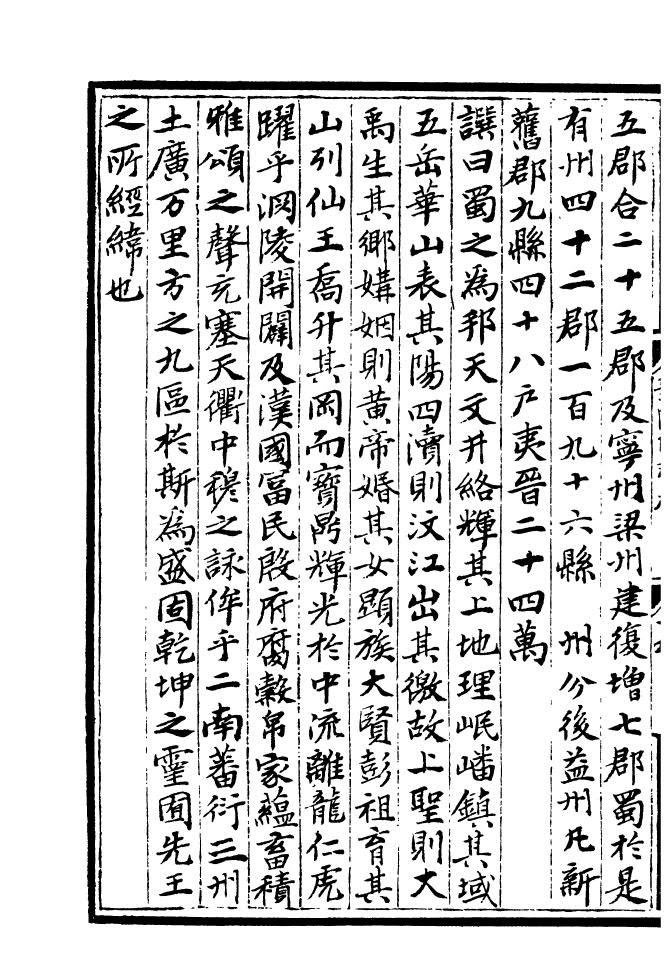 五郡合二十五郡及寧州梁州建復增七郡蜀於是
有州四十二郡一百九十六縣　州分後益州凡新
舊郡九縣四十八户夷晉二十四萬
譔曰蜀之為邦天文井絡輝其上地理岷嶓鎮其域
五岳華山表其陽四瀆則汶江出其徼故上聖則大
禹生其鄉媾姻則黄帝婚其女顯族大賢彭祖育其
山列仙王喬升其岡而寶鼎輝光於中流離龍仁虎
躍乎淵陵開闢及漢國富民殷府腐穀帛家藴畜積
雅頌之聲充塞天衢中穆之詠侔乎二南蕃衍三州
土廣万里方之九區於斯為盛固乾坤之靈囿先王
之所經緯也